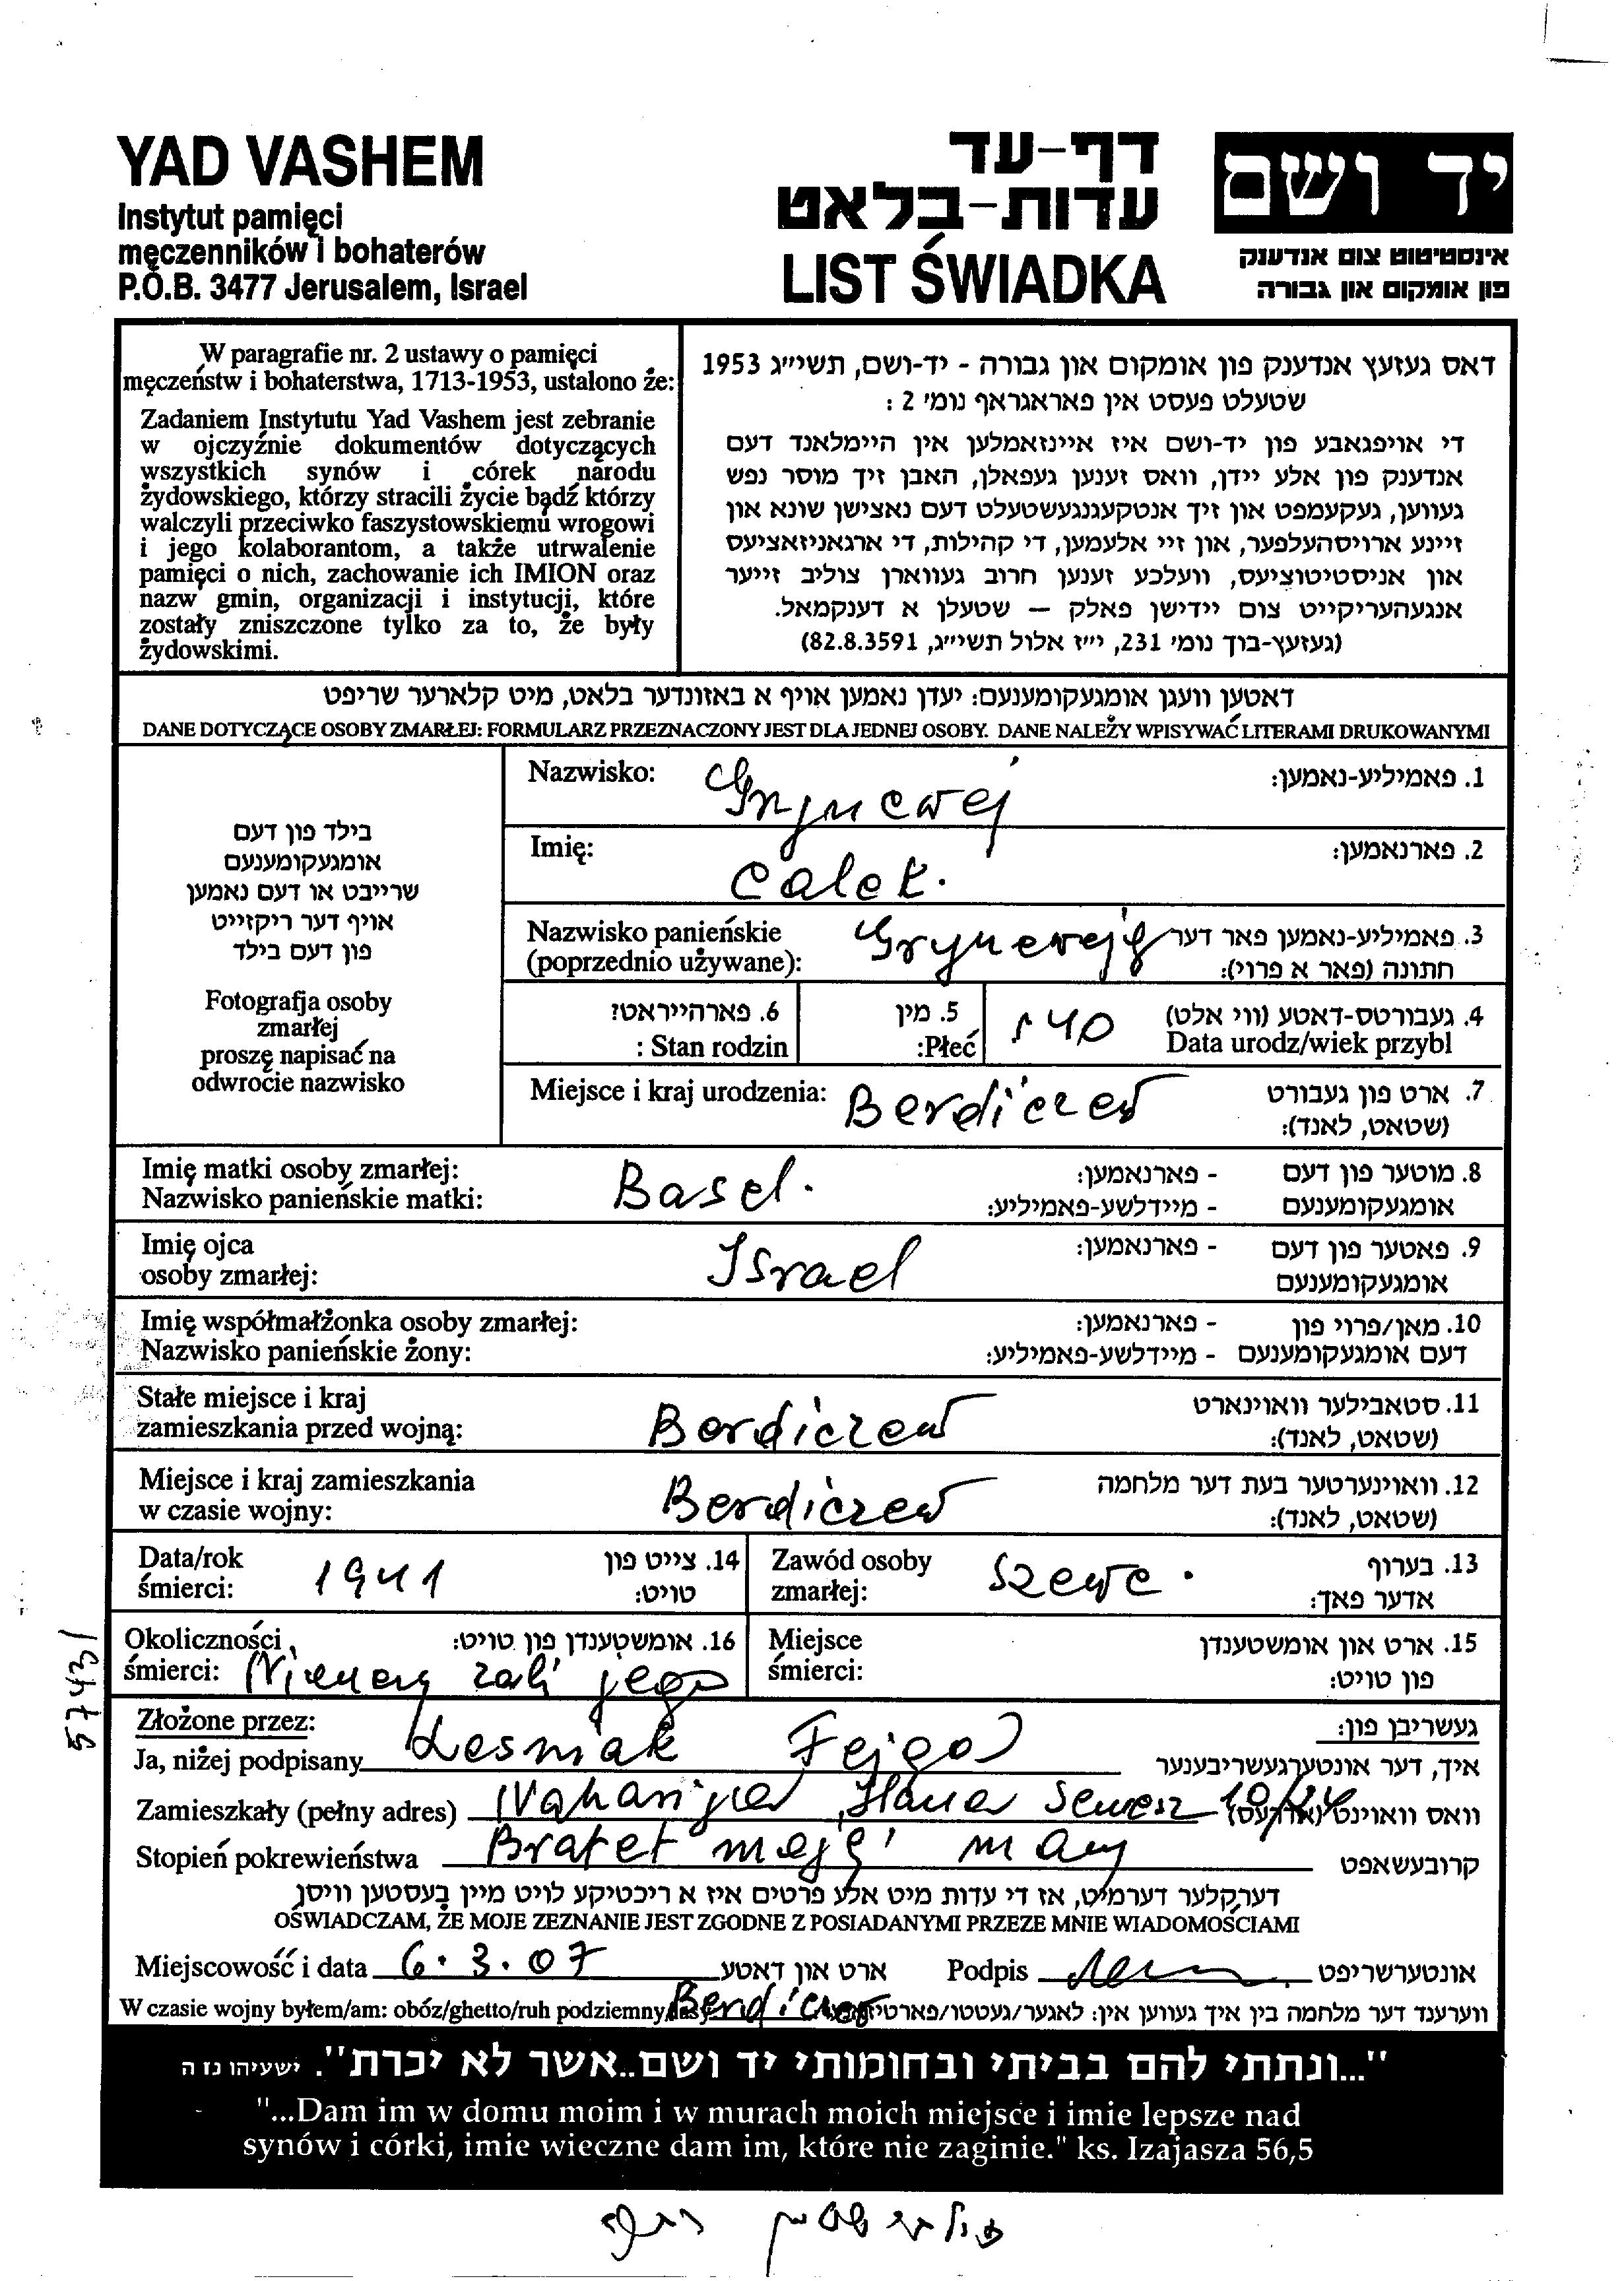 YAD VASHEM
Instytut pamięci
męczenników i bohaterów
P.O.B. 3477 Jerusalem, Israel
דף-עד
עדות-בלאט
LIST ŚWIADKA
יד ושם
אינסטיטוט צום אנדענק
פון אומקום און גבורה
W paragrafie nr. 2 ustawy o pamięci
męczeństw i bohaterstwa, 1713-1953, ustalono że:
Zadaniem Instytutu Yad Vashem jest zebranie
w ojczyźnie dokumentów dotyczących
wszystkich synów i córek narodu
żydowskiego, którzy stracili życie bądź którzy
walczyli przeciwko faszystowskiemu wrogowi
i jego kolaborantom, a także utrwalenie
pamięci o nich, zachowanie ich IMION oraz
nazw gmin, organizacji i instytucji, które
zostały zniszczone tylko za to, że były
żydowskimi.
דאס געזעץ אנדענק פון אומקום און גבורה - יד-ושם, תשי״ג 1953
שטעלט פעסט אין פאראגראף נומ׳ 2 :
די אויפגאבע פון יד-ושם איז איינזאמלען אין היימלאנד דעם
אנדענק פון אלע יידן, וואס זענען געפאלן, האבן זיך מוסר נפש
געווען, געקעמפט און זיך אנטקעגנגעשטעלט דעם נאצישן שונא און
זיינע ארויסהעלפער, און זיי אלעמען, די קהילות, די ארגאניזאציעס
און אניסטיטוציעס, וועלכע זענען חרוב געווארן צוליב זייער
אנגעהעריקייט צום יידישן פאלק – שטעלן א דענקמאל.
(געזעץ-בוך נומ׳ 231, י״ז אלול תשי״ג, 82.8.3591)
דאטען וועגן אומגעקומענעם: יעדן נאמען אויף א באזונדער בלאט, מיט קלארער שריפט
DANE DOTYCZĄCE OSOBY ZMARŁEJ: FORMULARZ PRZEZNACZONY JEST DLA JEDNEJ OSOBY. DANE NALEŻY WPISYWAĆ LITERAMI DRUKOWANYMI
בילד פון דעם
אומגעקומענעם
שרייבט או דעם נאמען
אויף דער ריקזייט
פון דעם בילד
Fotografja osoby
zmarłej
proszę napisać na
odwrocie nazwisko
Nazwisko: Grynewej 1. פאמיליע-נאמען:
Imię: Calek. 2. פארנאמען:
Nazwisko panieńskie 3. פאמיליע-נאמען פאר דער
(poprzednio używane): חתונה (פאר א פרוי):
6. פארהייראט? 5. מין 4. געבורטס-דאטע (ווי אלט)
Stan rodzin : Płeć: 40 Data urodz/wiek przybl
Miejsce i kraj urodzenia: Berdiczew 7. ארט פון געבורט
(שטאט, לאנד):
Imię matki osoby zmarłej: Basel. - פארנאמען: 8. מוטער פון דעם
Nazwisko panieńskie matki: - מיידלשע-פאמיליע: אומגעקומענעם
Imię ojca Israel - פארנאמען: 9. פאטער פון דעם
osoby zmarłej: אומגעקומענעם
Imię współmałżonka osoby zmarłej: - פארנאמען: 10. מאן/פרוי פון
Nazwisko panieńskie żony: - מיידלשע-פאמיליע: דעם אומגעקומענעם
Stałe miejsce i kraj 11. סטאבילער וואוינארט
zamieszkania przed wojną: Berdiczew (שטאט, לאנד):
Miejsce i kraj zamieszkania 12. וואוינערטער בעת דער מלחמה
w czasie wojny: Berdiczew (שטאט, לאנד):
Data/rok 14. צייט פון Zawód osoby 13. בערוף
śmierci: 1941 טויט: zmarłej: Szewc. אדער פאך:
Okoliczności 16. אומשטענדן פון טויט: Miejsce 15. ארט און אומשטענדן
śmierci: Niemcy zabi jego śmierci: פון טויט:
57431
Złożone przez: געשריבן פון:
Ja, niżej podpisany Lesniak Fejga איך, דער אונטערגעשריבענער
Zamieszkały (pełny adres) Naharija Hana Senesz 10/24 וואס וואוינט (אדרעס)
Stopień pokrewieństwa Bratet mojej mamy קרובעשאפט
דערקלער דערמיט, אז די עדות מיט אלע פרטים איז א ריכטיקע לויט מיין בעסטען וויסן
OŚWIADCZAM, ŻE MOJE ZEZNANIE JEST ZGODNE Z POSIADANYMI PRZEZE MNIE WIADOMOŚCIAMI
Miejscowość i data 6.3.07 ארט און דאטע Podpis אונטערשריפט
W czasie wojny byłem/am: obóz/ghetto/ruh podziemny/lasy Berdiczew ווערענד דער מלחמה בין איך געווען אין: לאגער/געטטו/פארטיזאנער
"...ונתתי להם בביתי ובחומותי יד ושם..אשר לא יכרת". ישעיהו נז ה
"...Dam im w domu moim i w murach moich miejsce i imie lepsze nad
synów i córki, imie wieczne dam im, które nie zaginie." ks. Izajasza 56,5